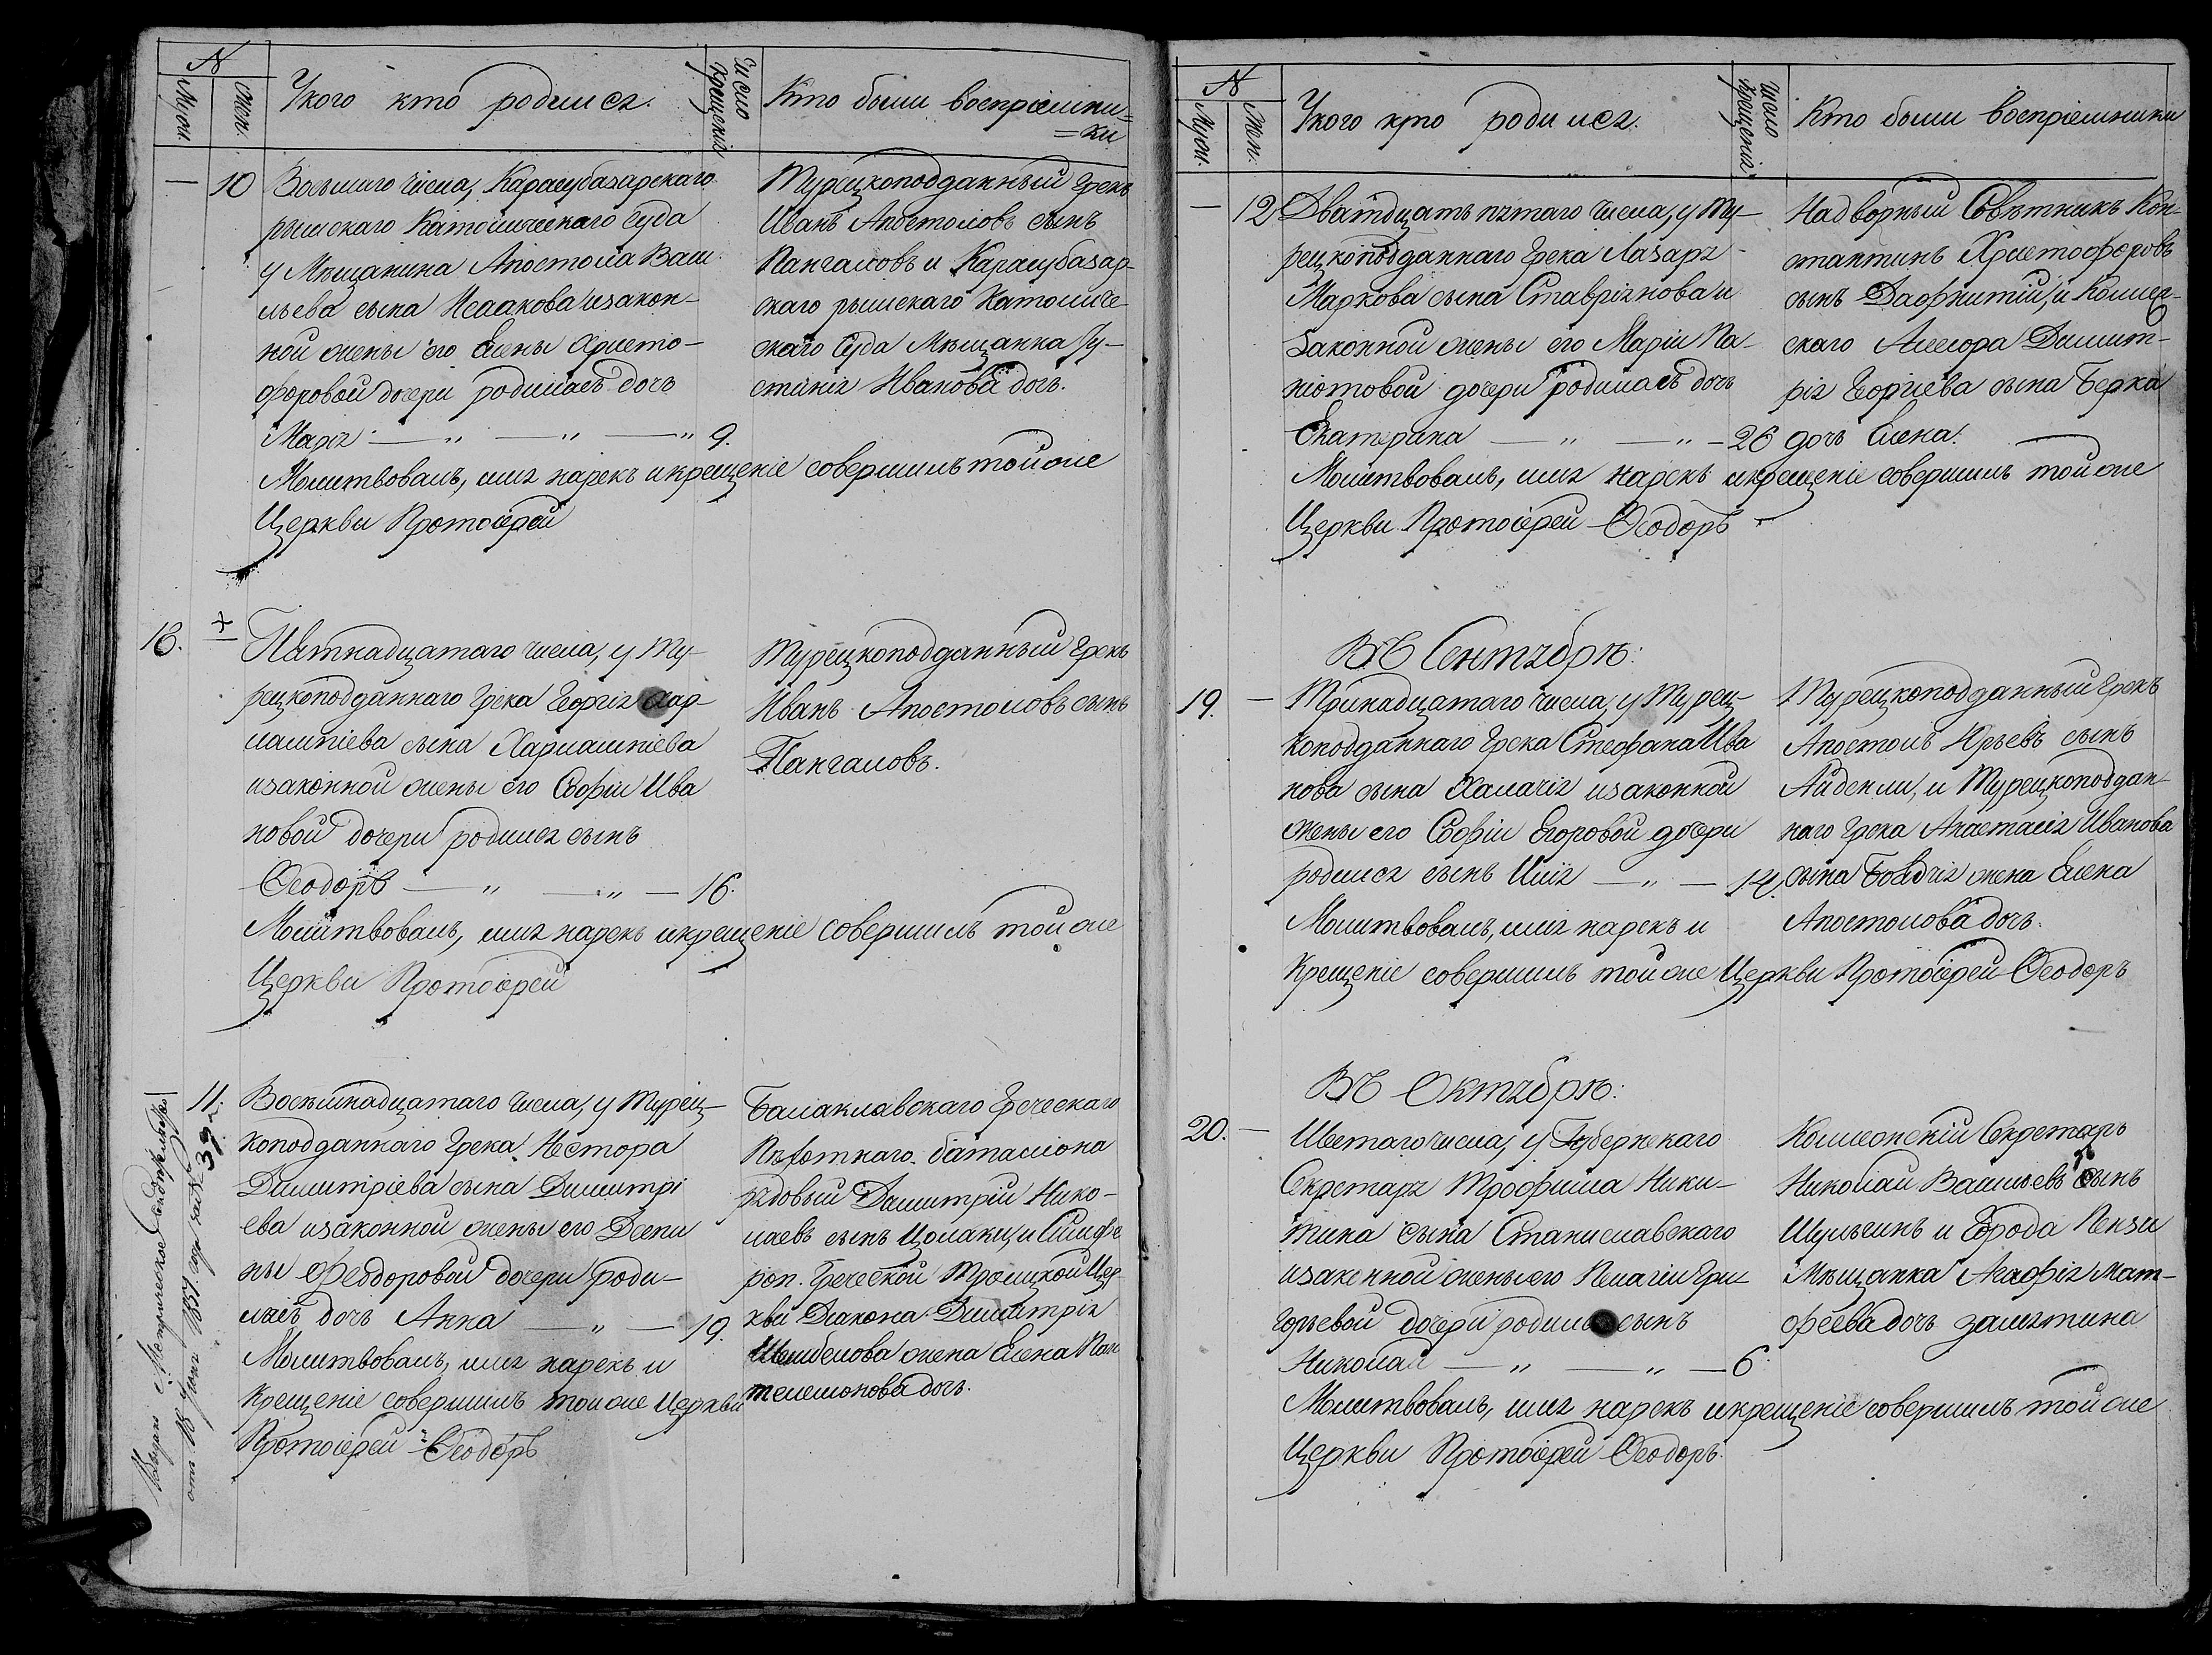 №
Муж.
Жен.
У кого кто родился.
Число крещенія
Кто были воспріемни=
=ки
— 10 Восьмаго числа, Карасубазарскаго
рымскаго Католическаго Суда
у Мещанина Апостола Васи
льева сына Исаакова изакон-
ной жены его Елены Христо-
форовой дочери родилась дочь
Марія — " — " — " 9.
Турецкоподданный Грекъ
Иванъ Апостоловъ сынъ
Пангаловъ и Карасубазар-
скаго рымскаго Католиче-
скаго Суда Мѣщанка Іу-
стинія Иванова дочь.
Молитвовалъ, имя нарекъ и крещеніе совершилъ той же
Церкви Протоіерей
18. + Пятнадцатаго числа, у Ту-
рецкоподданнаго Грека Георгія Хар-
лампіева сына Харлампіева
изаконной жены его Софіи Ива
новой дочери родился сынъ
Ѳеодоръ — " — " — 16.
Турецкоподданный Грекъ
Иванъ Апостоловъ сынъ
Пангаловъ.
Молитвовалъ, имя нарекъ и крещеніе совершилъ той же
Церкви Протоіерей
11. Восемнадцатаго числа, у Турец-
коподданнаго Грека Нестора
Димитріева сына Димитрі
ева изаконной жены его Деспи
ны Феодоровой дочери роди-
лась дочь Анна — " — 19.
Молитвовалъ, имя нарекъ и
крещеніе совершилъ той же Церкви
Протоіерей Ѳеодоръ
Балаклавскаго Греческаго
Пѣхотнаго баталіона
рядовый Димитрій Нико-
лаевъ сынъ Цолаки, и Симфе
роп. Греческой Троицкой Цер
кви Діакона Димитрія
жена Елена Пан
телемонова дочь.
Выдано Метрическое Свидѣтельство
1851 года за № 392
№
Муж.
Жен.
У кого кто родился.
Число крещенія
Кто были воспріемники
— 12 Дватдцать пятаго числа, у Ту-
рецкоподданнаго Грека Лазаря
Маркова сына Ставріянова и
Законной жены его Маріи Па-
ніотовой дочери родилась дочь
Екатерина — " — " — 26
Надворный Совѣтникъ Кон-
стантинъ Христофоровъ
сынъ Дафнитій, и Коллеж-
скаго Асесора Димит-
рія Георгіева сына Берка
дочь Елена. —
Молитвовалъ, имя нарекъ и крещеніе совершилъ той же
Церкви Протоіерей Ѳеодоръ
Въ Сентябрѣ:
19. — Тринадцатаго числа, у Турец-
коподданнаго Грека Стефана Ива
нова сына Халачія изаконной
жены его Софіи Егоровой дочери
родился сынъ Илія — " — 14.
Турецкоподданный Грекъ
Апостолъ Юрьевъ сынъ
Айденли, и Турецкоподдан-
наго Грека Анастасія Иванова
сына Боядчія жена Елена
Апостолова дочь.
Молитвовалъ, имя нарекъ и
Крещеніе совершилъ той же Церкви Протоіерей Ѳеодоръ
Въ Октябрѣ:
20. — Шестаго числа, у Губернскаго
Секретаря Трофима Ники-
тина сына Станиславскаго
изаконной жены его Пелагіи Гри
горьевой дочери родился сынъ
Николай — " — " — 6.
Коллежскій Секретарь
Николай Васильевъ сынъ
Шульгинъ и Города Пензы
Мѣщанка Агафія Мат-
феева дочь Замятина
Молитвовалъ, имя нарекъ и крещеніе совершилъ той же
Церкви Протоіерей Ѳеодоръ